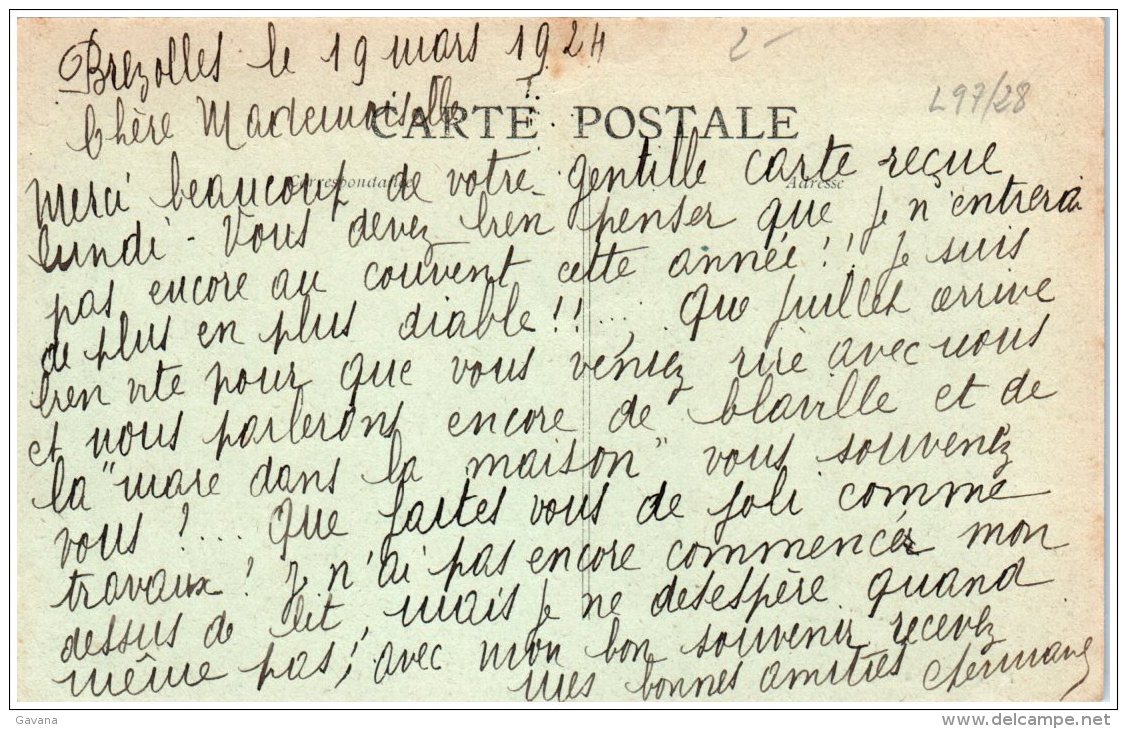 Brezolles le 19 mars 1924
2 -
L97/28
Chère Mademoiselle
CARTE POSTALE
Correspondance
Adresse
Merci beaucoup de votre gentille carte reçue
lundi - Vous devez bien penser que je n'entrerai
pas encore au couvent cette année!! Je suis
de plus en plus diable!!... Que Juillet arrive
bien vite pour que vous veniez rire avec nous
et nous parlerons encore de blaville et de
la "mare dans la maison" vous souvenez
vous !... Que faites vous de joli comme
travaux! Je n'ai pas encore commencer mon
dessus de lit, mais je ne desespère quand
même pas! avec mon bon souvenir recevez
mes bonnes amitiés Germaine
Gavana
delcampe.net